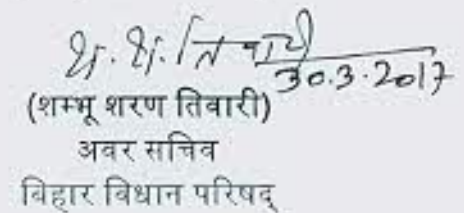 श. श. तिवारी
30.3.2017
(शम्भू शरण तिवारी)
अवर सचिव
बिहार विधान परिषद्